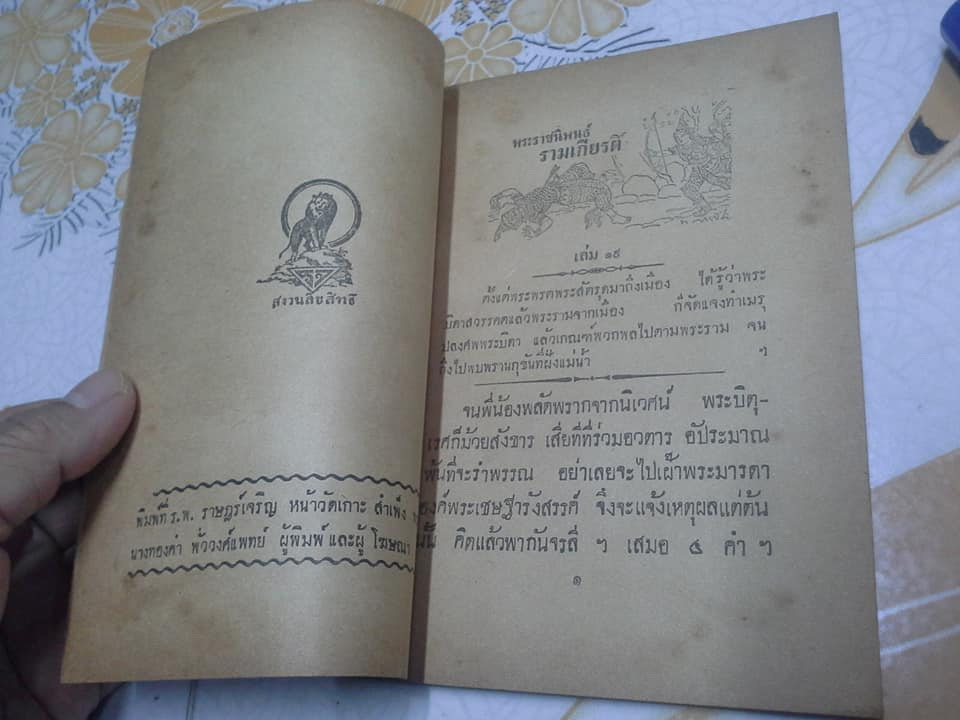 สงวนลิขสิทธิ์
พิมพ์ที่ ร.พ. ราษฎร์เจริญ หน้าวัดเกาะ สำเพ็ง
นางทองคำ พั่ววงศ์แพทย์ ผู้พิมพ์และผู้โฆษณา
พระราชนิพนธ์
รามเกียรติ์
เล่ม ๑๙
ตั้งแต่พระพรตพระสัตรุดมาถึงเมือง ได้รู้ว่าพระ
บิดาสวรรคตแล้วพระรามจากเมือง ก็จัดแจงทำเมรุ
ปลงศพพระบิดา แล้วเกณฑ์พวกพลไปตามพระราม จน
ถึงไปพบพรานกุขันที่ฝั่งแม่น้ำ ฯ
จนพี่น้องพลัดพรากจากนิเวศน์ พระบิตุ-
เรศก็ม้วยสังขาร เสียทีที่ร่วมอวตาร อัประมาณ
พ้นที่จะรำพรรณ อย่าเลยจะไปเฝ้าพระมารดา
องค์พระเชษฐารังสรรค์ จึ่งจะแจ้งเหตุผลแต่ต้น
นั้น คิดแล้วพากันจรลี ฯ เสมอ ๕ คำ ฯ
๑